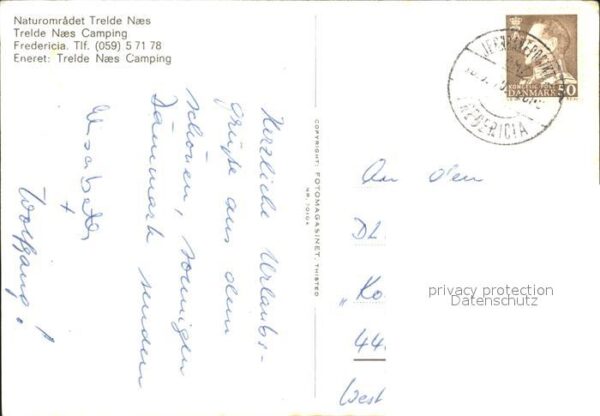 Naturområdet Trelde Næs
Trelde Næs Camping
Fredericia. Tlf. (059) 5 71 78
Eneret: Trelde Næs Camping
Herzliche Urlaubs-
grüße aus dem
schönen, sonnigen
Dänemark senden
Elisabeth
+
Wolfgang!
COPYRIGHT: FOTOMAGASINET, THISTED
An den
DL
"Ko
44
West
DANMARK 50
FREDERICIA
privacy protection
Datenschutz